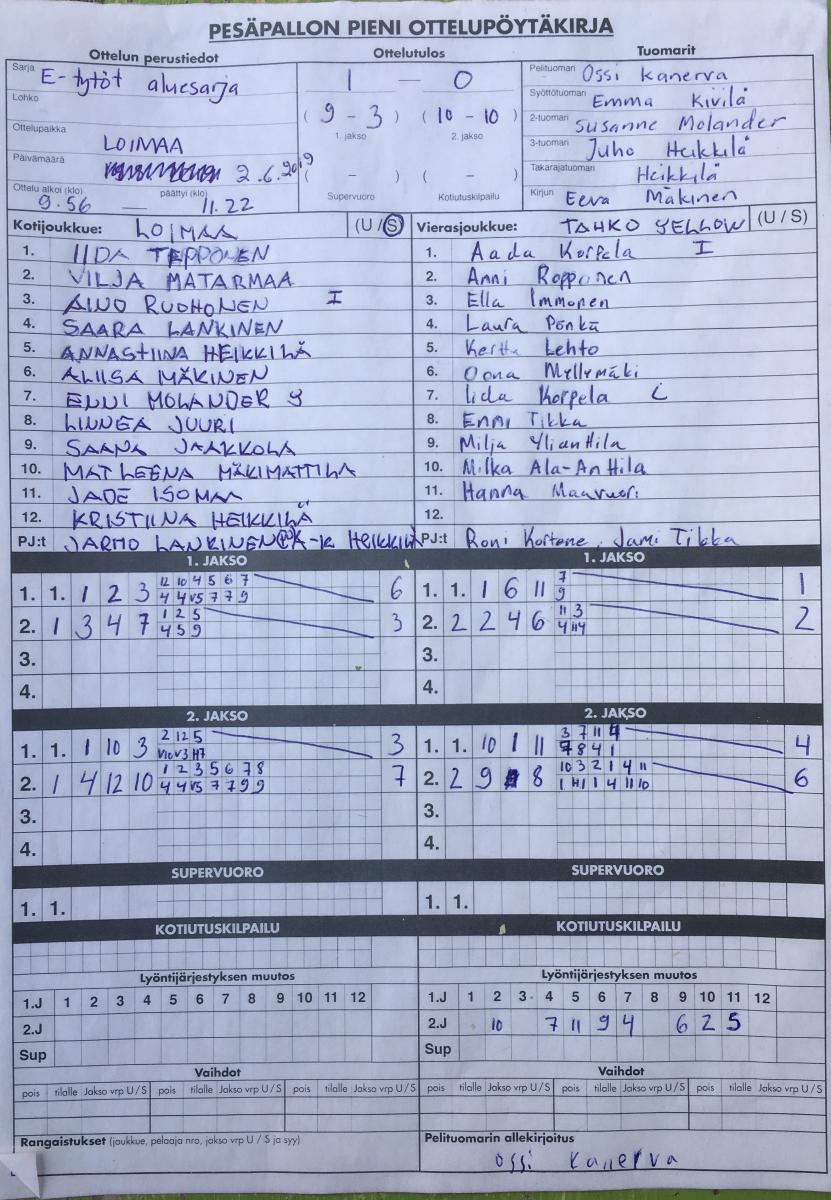 PESÄPALLON PIENI OTTELUPÖYTÄKIRJA
Ottelun perustiedot Ottelutulos Tuomarit
Sarja E-tytöt aluesarja
Lohko
Ottelupaikka LOIMAA
Päivämäärä 2.6.2019
Ottelu alkoi (klo) päättyi (klo)
9.56 — 11.22
1 — 0
(9 - 3) (10 - 10)
1. jakso 2. jakso
( - ) ( - )
Supervuoro Kotiutuskilpailu
Pelituomari Ossi Kanerva
Syöttötuomari Emma Kivilä
2-tuomari Susanne Molander
3-tuomari Juho Heikkilä
Takarajatuomari Heikkilä
Kirjuri Eeva Mäkinen
Kotijoukkue: LOIMAA (U / S)
1. IIDA TEPPONEN
2. VILJA MATARMAA
3. AINO RUOHONEN I
4. SAARA LANKINEN
5. ANNASTIINA HEIKKILÄ
6. ALIISA MÄKINEN
7. ENNI MOLANDER
8. LINNEA JUURI
9. SAANA JAAKKOLA
10. MATLEENA MÄKIMATTILA
11. JADE ISOMAA
12. KRISTIINA HEIKKILÄ
PJ:t JARMO LANKINEN HEIKKILÄ
Vierasjoukkue: TAHKO YELLOW (U / S)
1. Aada Korpela I
2. Anni Ropponen
3. Ella Immonen
4. Laura Pönkä
5. Kerttu Lehto
6. Oona Myllymäki
7. Iida Korpela
8. Enni Tikka
9. Milja Ylianttila
10. Milka Ala-Anttila
11. Hanna Maavuori
12.
PJ:t Roni Jami Tikka
1. JAKSO
1. 1. 1 2 3 12 10 4 5 6 7 6
4 4 V5 7 7 9
2. 1 3 4 7 1 2 5 3
4 5 9
3.
4.
1. JAKSO
1. 1. 1 6 11 7 1
9
2. 2 2 4 6 11 3 2
4 H4
3.
4.
2. JAKSO
1. 1. 1 10 3 2 12 5 3
V10 V3 H7
2. 1 4 12 10 1 2 3 5 6 7 8 7
4 4 V5 7 7 9 9
3.
4.
2. JAKSO
1. 1. 10 1 11 3 7 11 4 4
8 4 1
2. 2 9 8 10 3 2 1 4 11 6
1 H1 1 4 11 10
3.
4.
SUPERVUORO
1. 1.
SUPERVUORO
1. 1.
KOTIUTUSKILPAILU
KOTIUTUSKILPAILU
Lyöntijärjestyksen muutos
1.J 1 2 3 4 5 6 7 8 9 10 11 12
2.J
Sup
Lyöntijärjestyksen muutos
1.J 1 2 3 4 5 6 7 8 9 10 11 12
2.J 10 7 11 9 4 6 2 5
Sup
Vaihdot
pois tilalle Jakso vrp U / S pois tilalle Jakso vrp U / S pois tilalle Jakso vrp U / S
Vaihdot
pois tilalle Jakso vrp U / S pois tilalle Jakso vrp U / S pois tilalle Jakso vrp U / S
Rangaistukset (joukkue, pelaaja nro, jakso vrp U / S ja syy)
Pelituomarin allekirjoitus
Ossi Kanerva